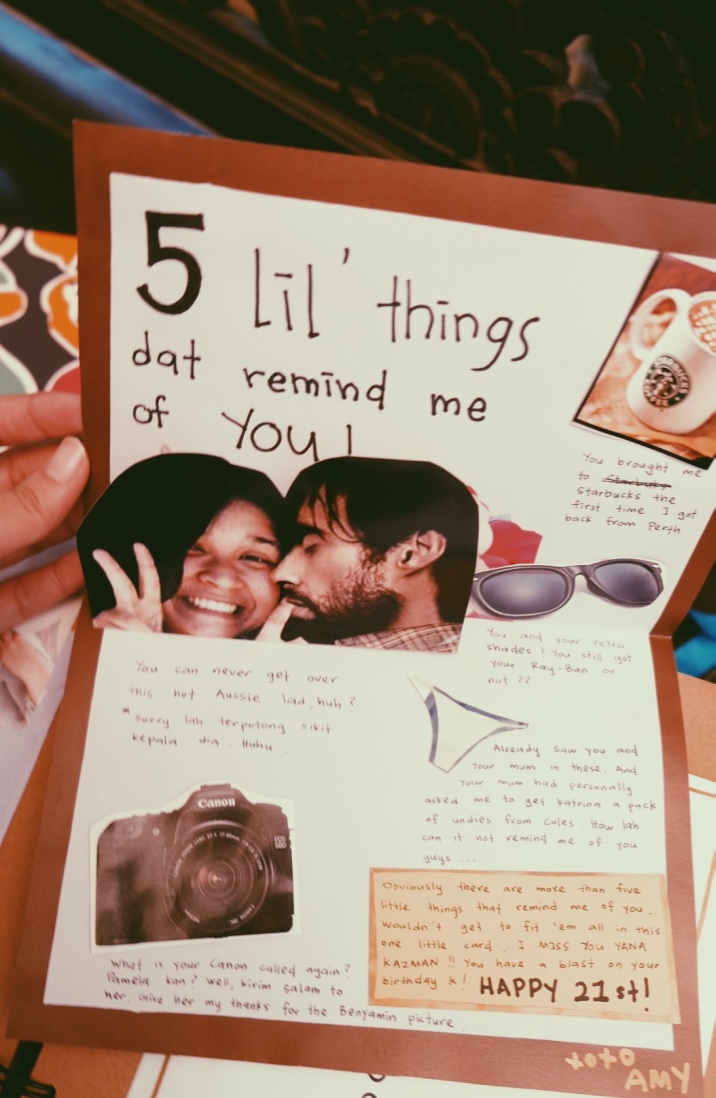 5 lil' things
dat remind me
of You!
You brought me
to Starbucks
Starbucks the
first time I got
back from Perth
You and your retro
shades! You still got
your Ray-Ban or
not ??
You can never get over
this hot Aussie lad, huh?
*sorry lah terpotong sikit
kepala dia. Huhu.
Already saw you and
your mum in these. And
your mum had personally
asked me to get Katrina a pack
of undies from Coles. How lah
can it not remind me of you
guys ...
Canon
What is your Canon called again?
Pamela kan? Well, kirim salam to
her. Give her my thanks for the Benyamin picture.
Obviously there are more than five
little things that remind me of you.
Wouldn't get to fit 'em all in this
one little card. I MISS YOU YANA
KAZMAN!! You have a blast on your
birthday k! HAPPY 21st!
xoxo
AMY